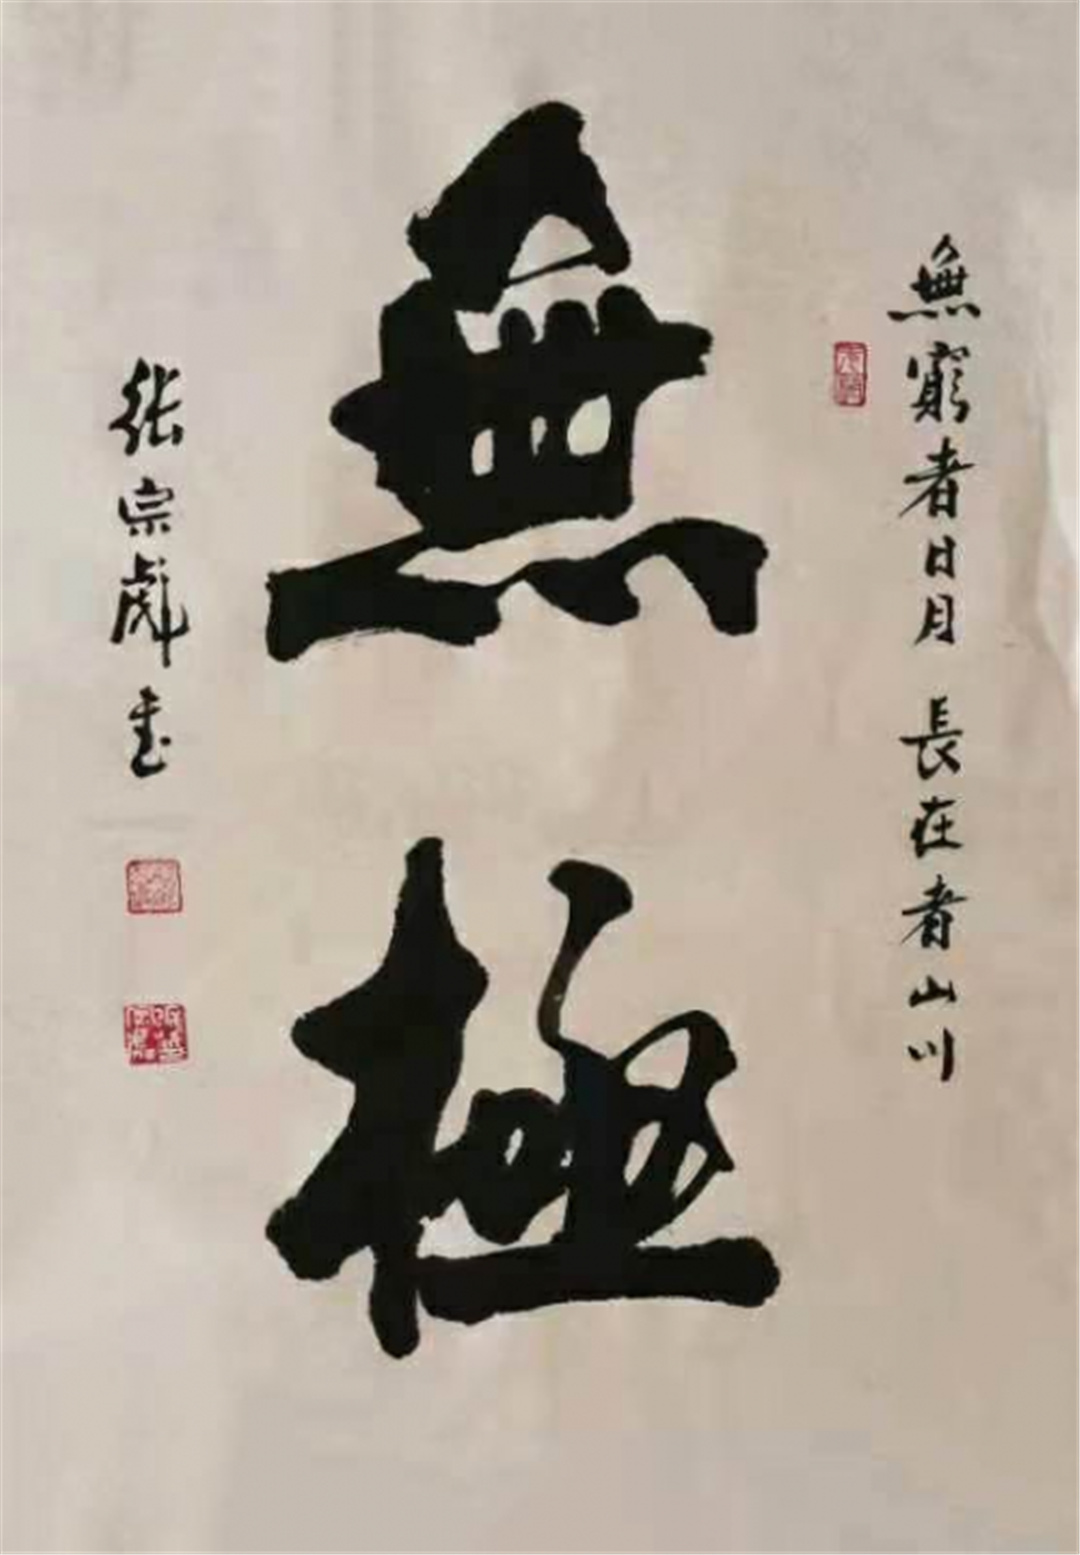 無窮者日月 長在者山川
無極
张宗彪